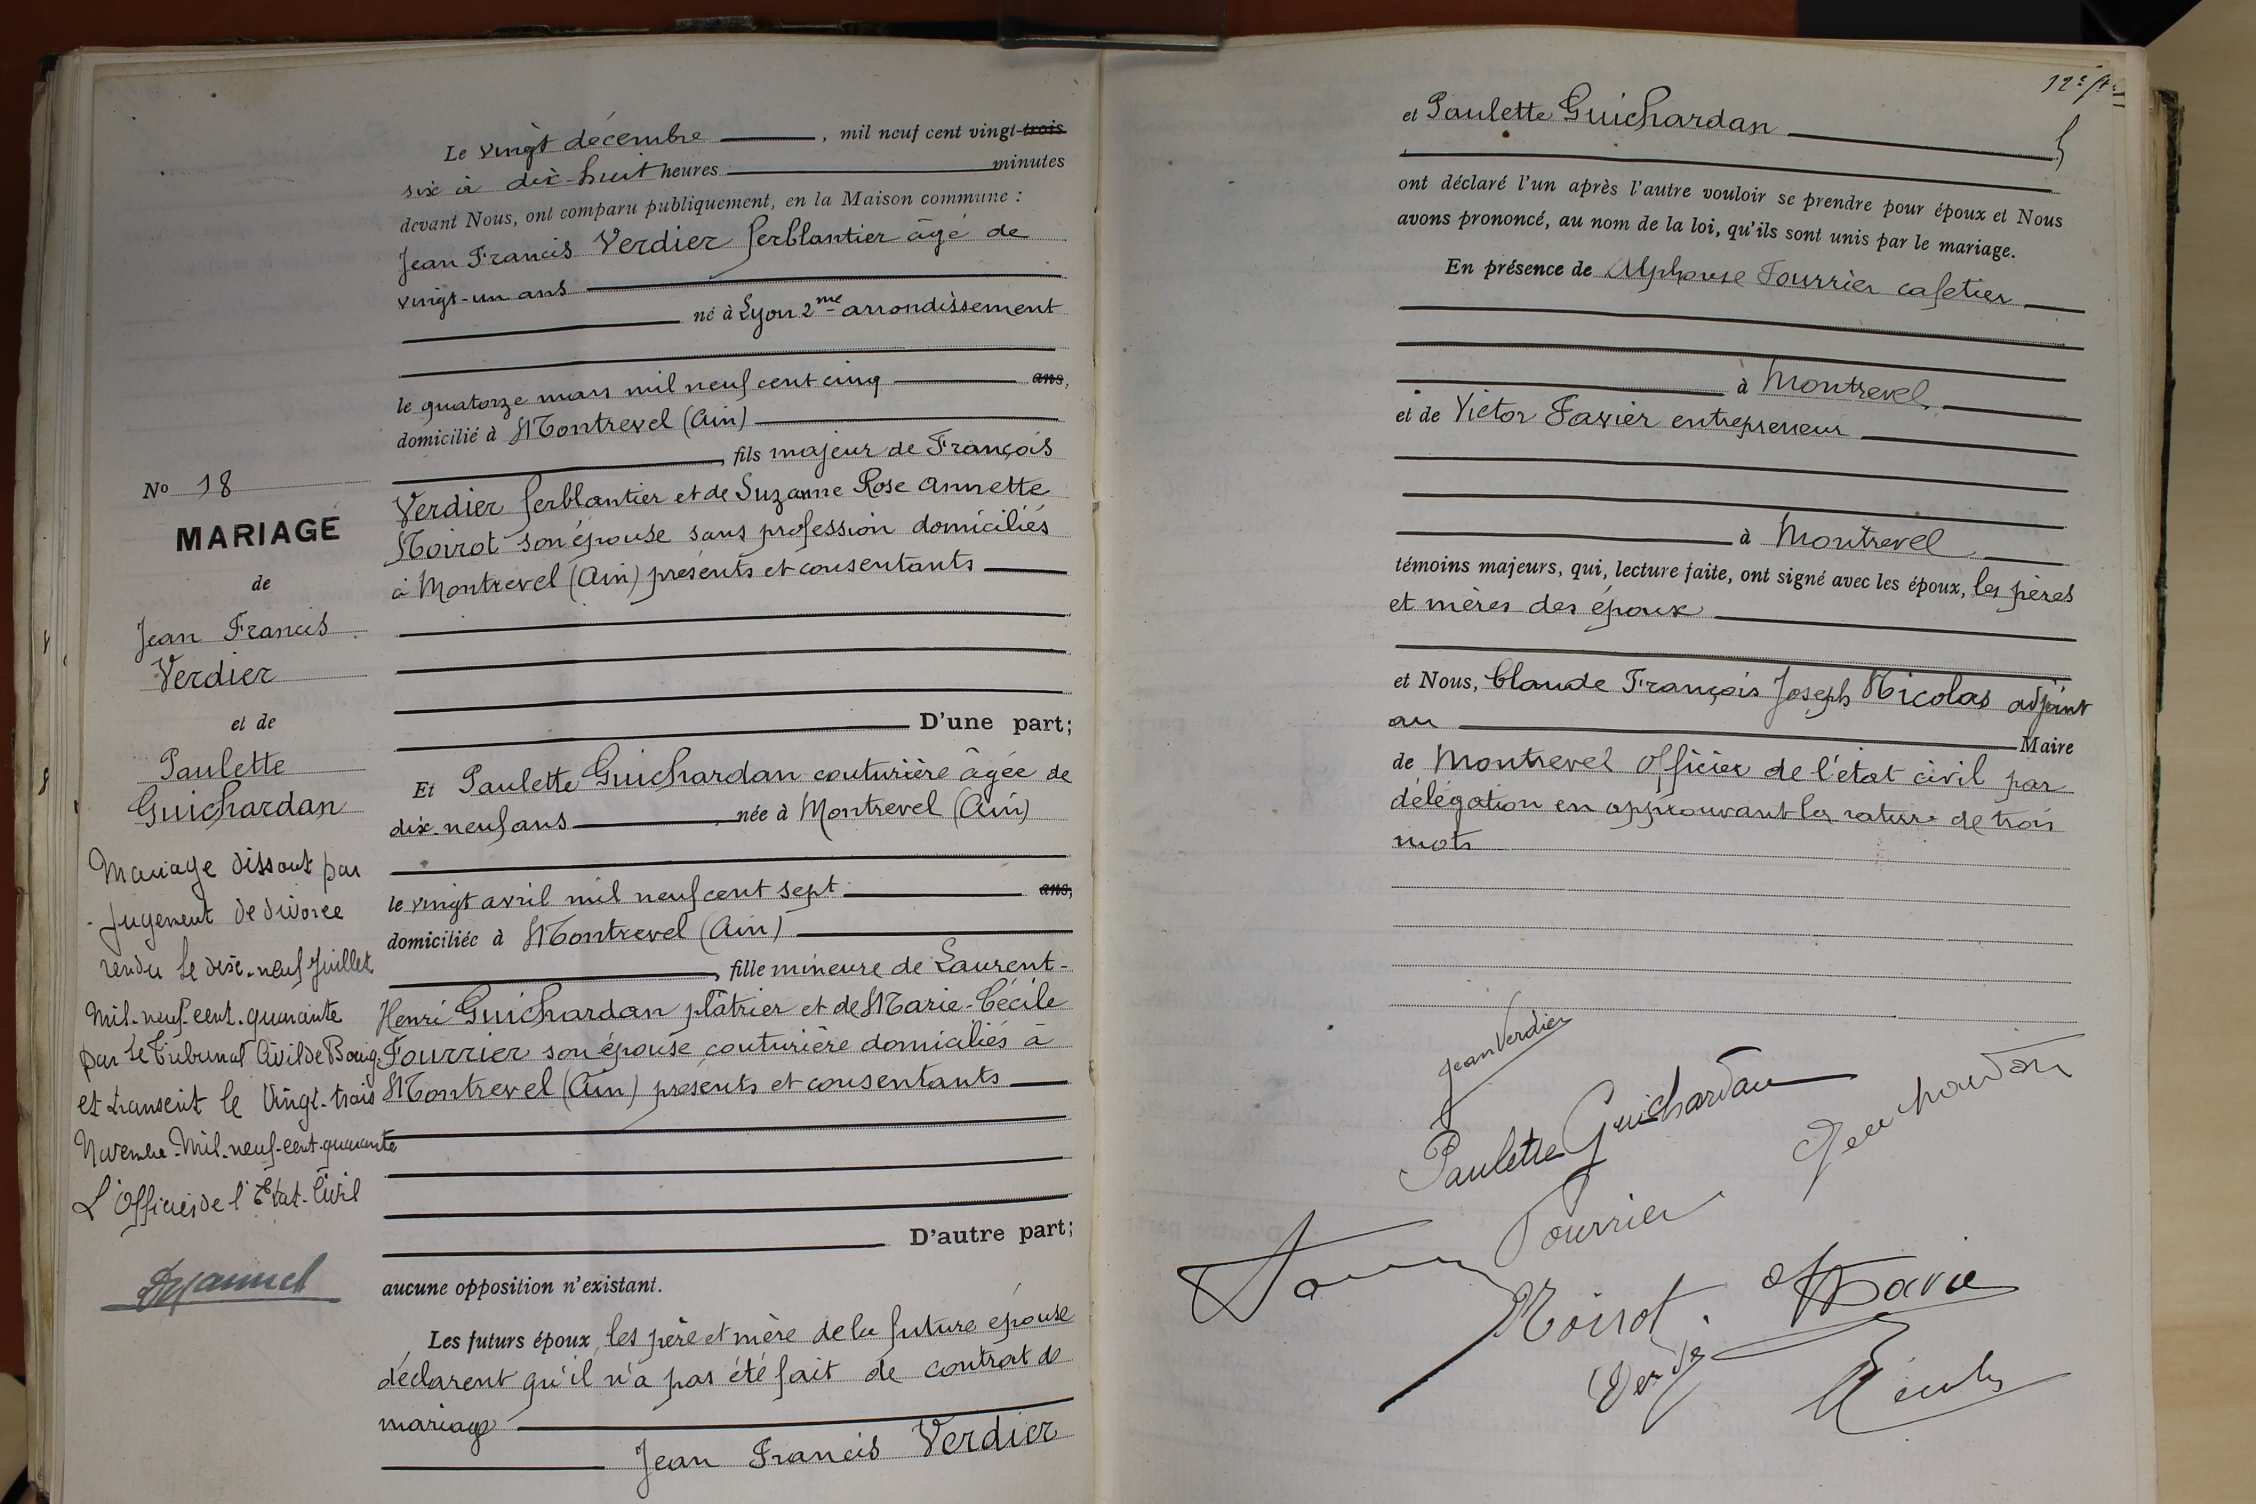 No 18
MARIAGE
de
Jean Francis
Verdier
et de
Paulette
Guichardan
Mariage dissout par
jugement de divorce
rendu le dix-neuf Juillet
mil-neuf-cent-quarante
par le Tribunal Civil de Bourg
et transcrit le vingt-trois
Novembre Mil-neuf-cent-quarante
L'Officier de l'Etat-Civil
Le vingt décembre, mil neuf cent vingt-trois
six à dix-huit heures minutes
devant Nous, ont comparu publiquement, en la Maison commune :
Jean Francis Verdier ferblantier âgé de
vingt-un ans
né à Lyon 2me arrondissement
le quatorze mars mil neuf cent cinq ans,
domicilié à Montrevel (Ain)
, fils majeur de François
Verdier ferblantier et de Suzanne Rose Annette
Noirot son épouse sans profession domiciliés
à Montrevel (Ain) présents et consentants
D'une part;
Et Paulette Guichardan couturière âgée de
dix-neuf ans née à Montrevel (Ain)
le vingt avril mil neuf cent sept ans,
domiciliée à Montrevel (Ain)
, fille mineure de Laurent-
Henri Guichardan plâtrier et de Marie-Cécile
Fourrier son épouse couturière domiciliés à
Montrevel (Ain) présents et consentants
D'autre part;
aucune opposition n'existant.
Les futurs époux, les père et mère de la future épouse
déclarent qu'il n'a pas été fait de contrat de
mariage
Jean Francis Verdier
et Paulette Guichardan
ont déclaré l'un après l'autre vouloir se prendre pour époux et Nous
avons prononcé, au nom de la loi, qu'ils sont unis par le mariage.
En présence de Alphonse Fourrier cafetier
à Montrevel,
et de Victor Favier entrepreneur
à Montrevel,
témoins majeurs, qui, lecture faite, ont signé avec les époux, les pères
et mères des époux
et Nous, Claude François Joseph Nicolas adjoint
au Maire
de Montrevel officier de l'état civil par
délégation en approuvant la rature de trois
mots
Jean Verdier
Paulette Guichardan
Guichardan
Fourrier
Noirot
Favier
Verdier
Nicolas